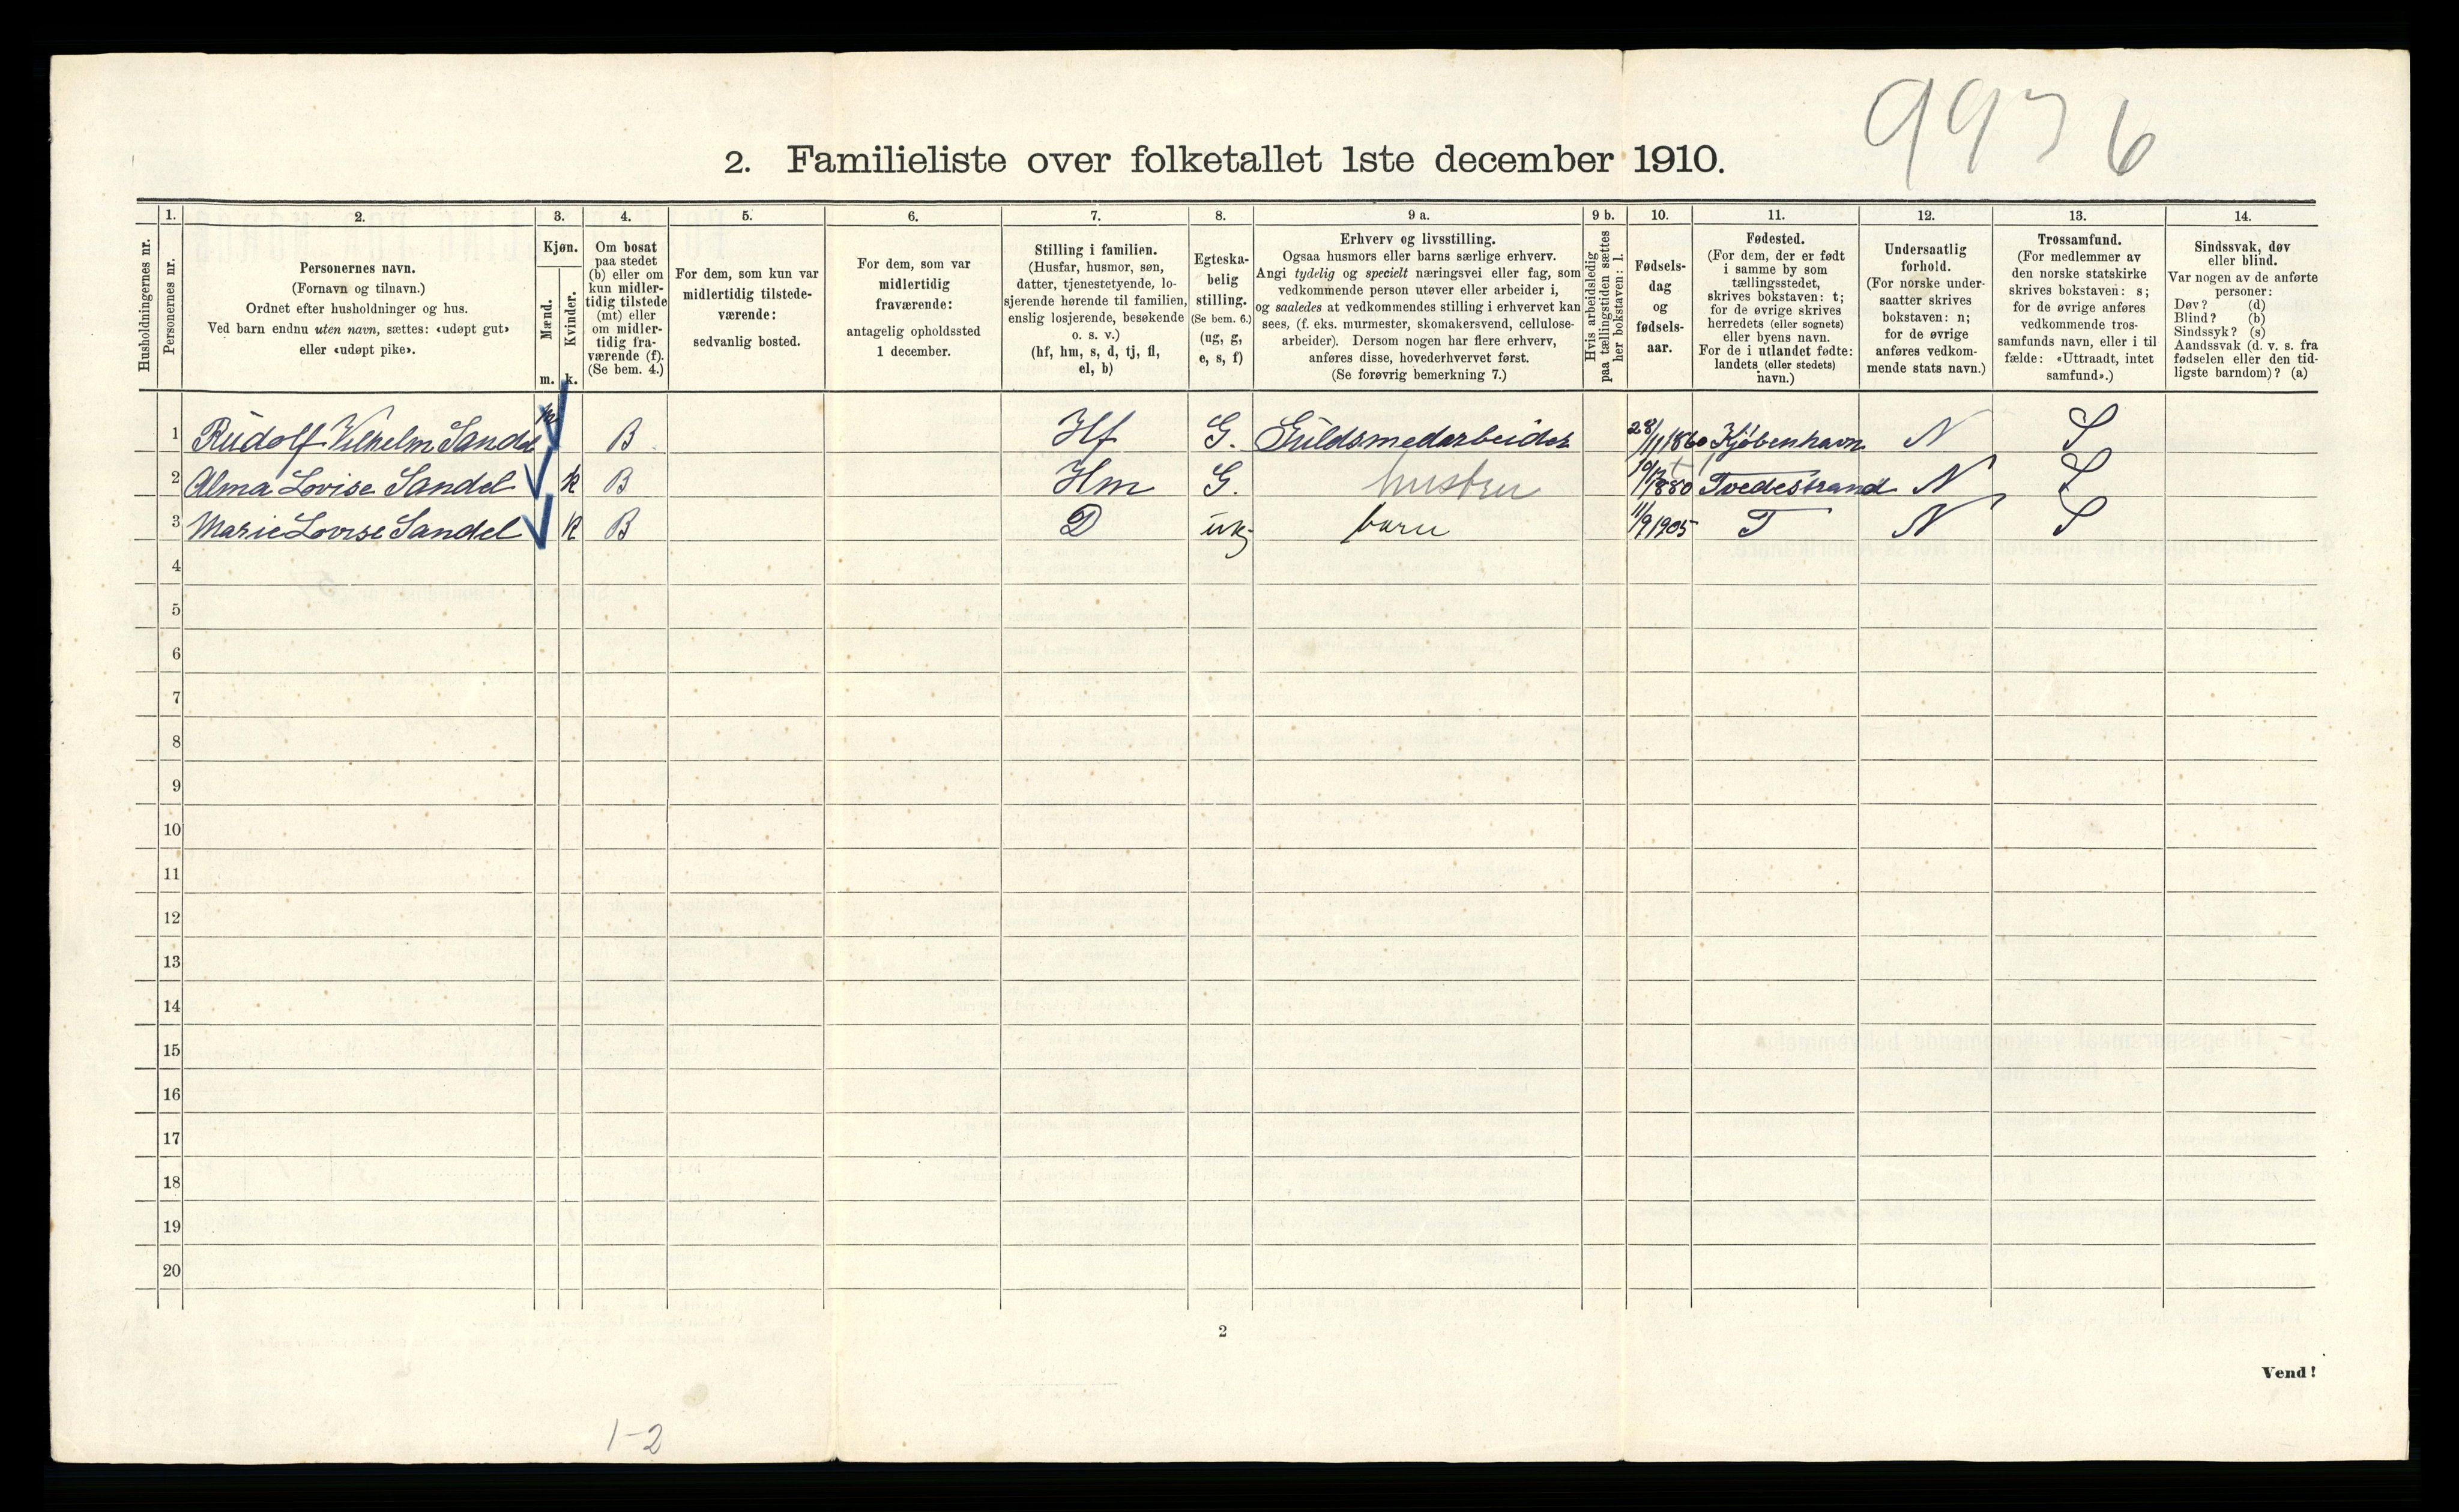 9976
2. Familieliste over folketallet 1ste december 1910.
Husholdningernes nr.
1. Personernes nr.
2. Personernes navn.
(Fornavn og tilnavn.)
Ordnet efter husholdninger og hus.
Ved barn endnu uten navn, sættes: «udøpt gut»
eller «udøpt pike».
3. Kjøn.
Mænd. m.
Kvinder. k.
4. Om bosat
paa stedet
(b) eller om
kun midler-
tidig tilstede
(mt) eller
om midler-
tidig fra-
værende (f).
(Se bem. 4.)
5. For dem, som kun var
midlertidig tilstede-
værende:
sedvanlig bosted.
6. For dem, som var
midlertidig
fraværende:
antagelig opholdssted
1 december.
7. Stilling i familien.
(Husfar, husmor, søn,
datter, tjenestetyende, lo-
sjerende hørende til familien,
enslig losjerende, besøkende
o. s. v.)
(hf, hm, s, d, tj, fl,
el, b)
8. Egteska-
belig
stilling.
(Se bem. 6.)
(ug, g,
e, s, f)
9 a. Erhverv og livsstilling.
Ogsaa husmors eller barns særlige erhverv.
Angi tydelig og specielt næringsvei eller fag, som
vedkommende person utøver eller arbeider i,
og saaledes at vedkommendes stilling i erhvervet kan
sees, (f. eks. murmester, skomakersvend, cellulose-
arbeider). Dersom nogen har flere erhverv,
anføres disse, hovederhvervet først.
(Se forøvrig bemerkning 7.)
9 b. Hvis arbeidsledig
paa tællingstiden sættes
her bokstaven: l.
10. Fødsels-
dag
og
fødsels-
aar.
11. Fødested.
(For dem, der er født
i samme by som
tællingsstedet,
skrives bokstaven: t;
for de øvrige skrives
herredets (eller sognets)
eller byens navn.
For de i utlandet fødte:
landets (eller stedets)
navn.)
12. Undersaatlig
forhold.
(For norske under-
saatter skrives
bokstaven: n;
for de øvrige
anføres vedkom-
mende stats navn.)
13. Trossamfund.
(For medlemmer av
den norske statskirke
skrives bokstaven: s;
for de øvrige anføres
vedkommende tros-
samfunds navn, eller i til
fælde: «Uttraadt, intet
samfund».)
14. Sindssvak, døv
eller blind.
Var nogen av de anførte
personer:
Døv? (d)
Blind? (b)
Sindssyk? (s)
Aandssvak (d. v. s. fra
fødselen eller den tid-
ligste barndom)? (a)
1 Rudolf Vilhelm Sandel m B Hf G. Guldsmedarbeider 28/11 1860 Kjøbenhavn N S
2 Alma Lovise Sandel k B Hm G. hustru 1880 Tvedestrand N S
3 Marie Lovise Sandel k B D ug barn 11/9 1905 T N S
4
5
6
7
8
9
10
11
12
13
14
15
16
17
18
19
20
2
Vend!
1-2